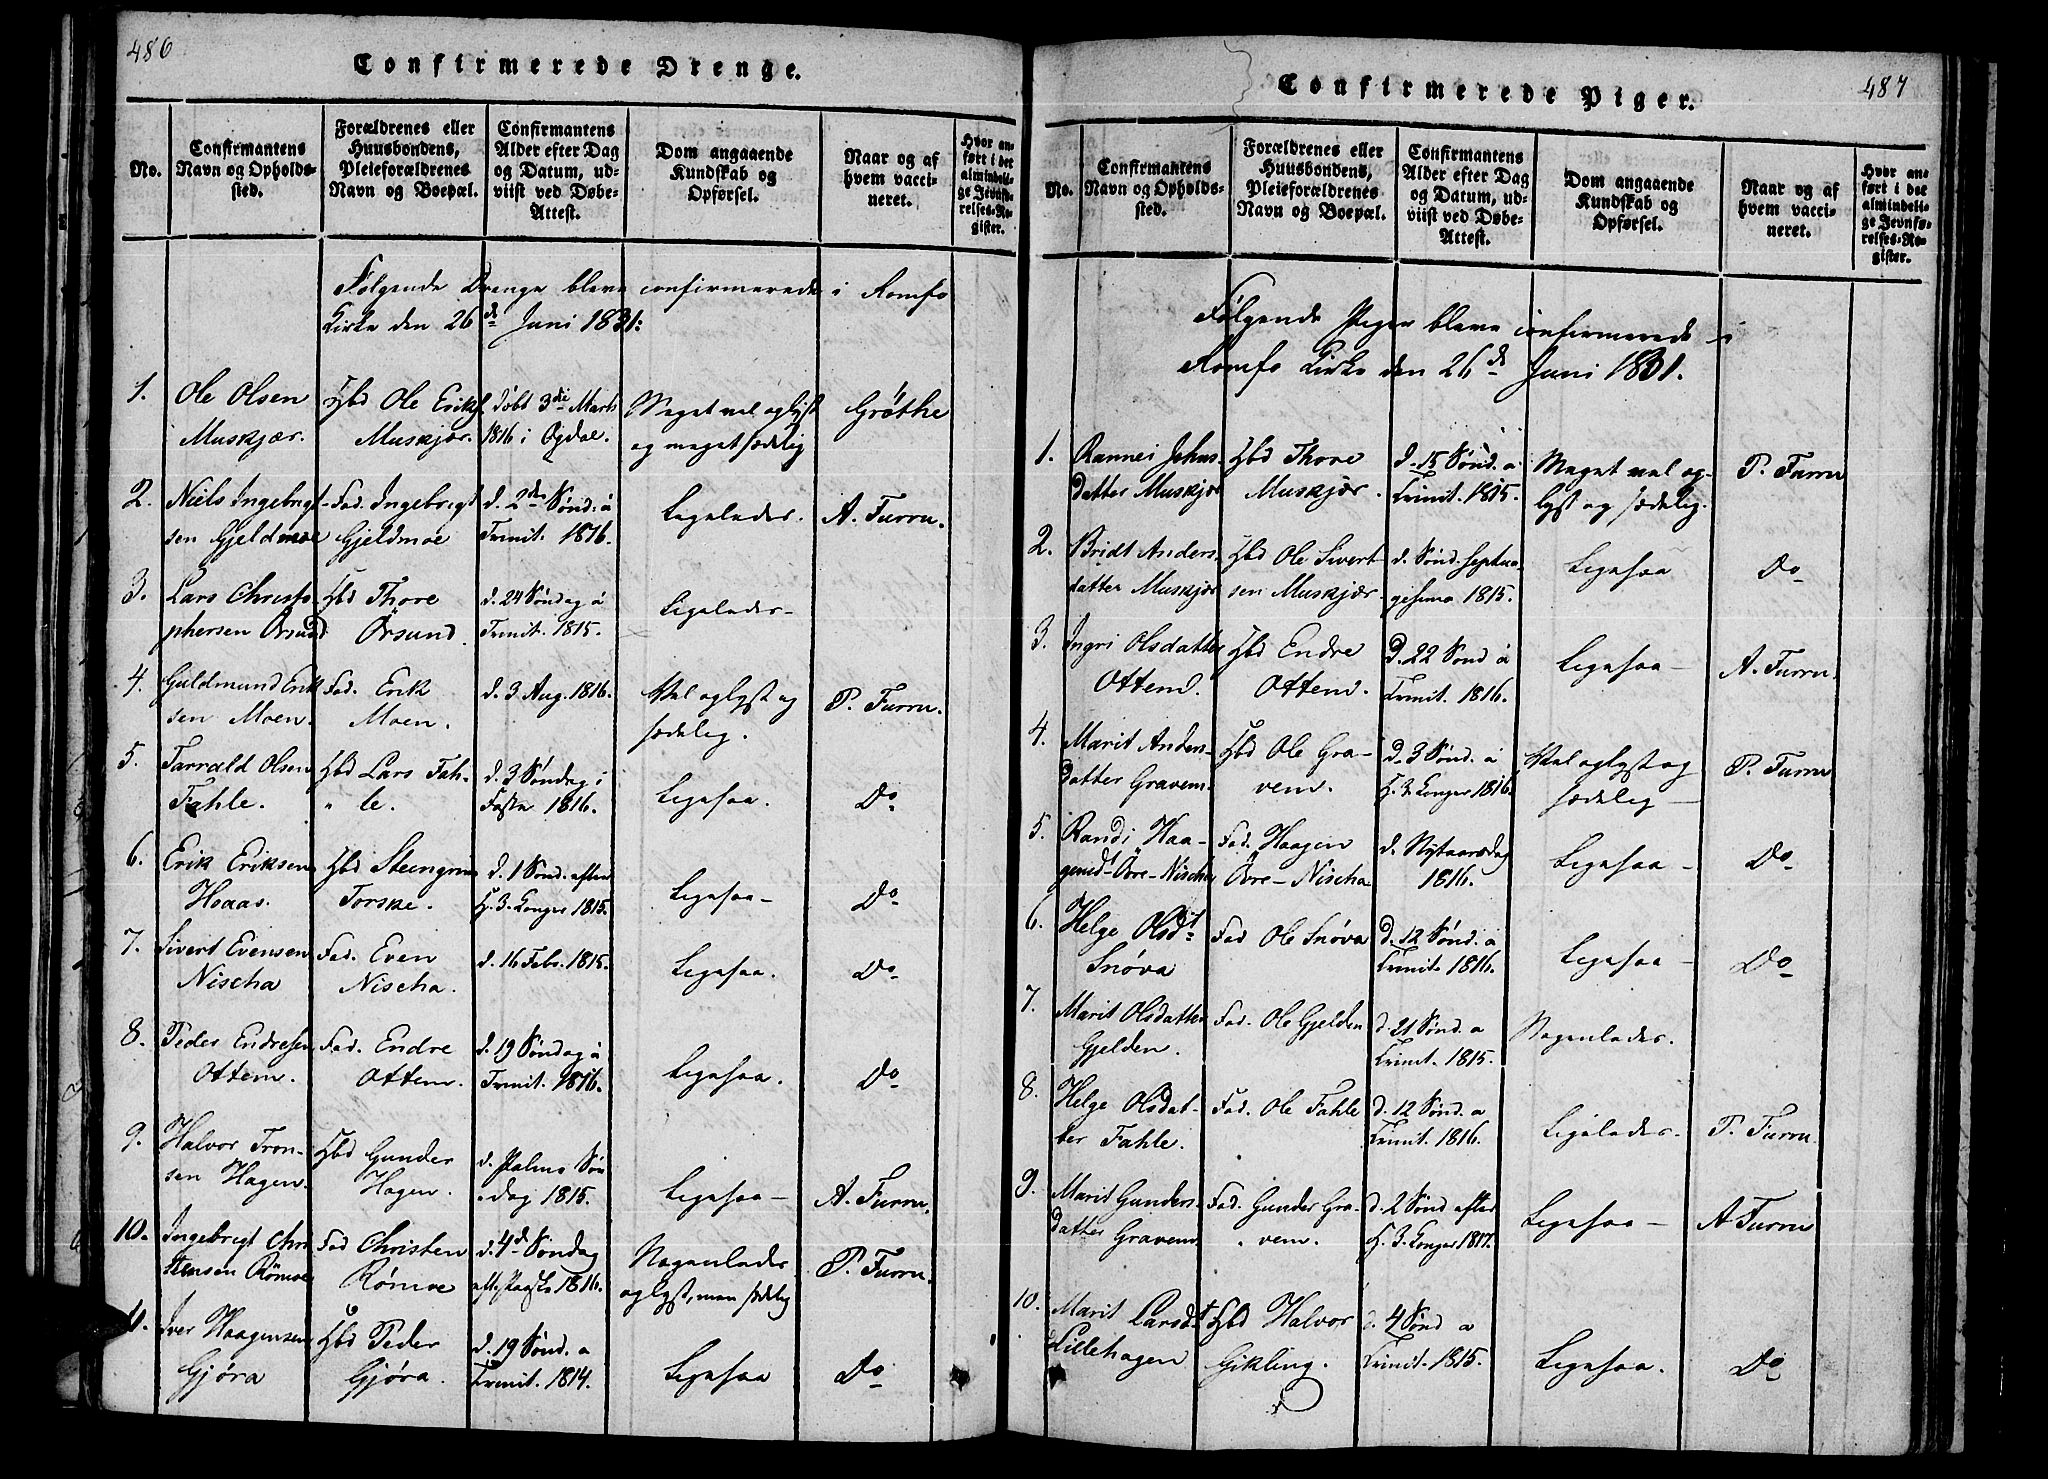 486
Confirmerede Drenge.
No.
Confirmantens
Navn og Opholds-
sted.
Forældrenes eller
Huusbondens,
Pleieforældrenes
Navn og Boepæl.
Confirmantens
Alder efter Dag
og Datum, ud-
viist ved Døbe-
Attest.
Dom angaaende
Kundskab og
Opførsel.
Naar og af
hvem vacci-
neret.
Hvor an-
ført i det
almindeli-
ge Jevnfø-
relses-Re-
gister.
Følgende Drenge bleve confirmerede i Romfo
Kirke den 26de Juni 1831:
1.
Ole Olsen
Muskjær.
Hbd Ole Eriks.
Muskjær.
Døbt 3die Marts
1816 i Ogdal.
Meget vel oplyst
og meget sædelig
Grøthe
2.
Niels Ingebrigt-
sen Gjeldmoe
Fad. Ingebrigt
Gjeldmoe
d. 2den Sønd. a
Trinit. 1816.
Ligeledes.
A. Furru.
3.
Lars Christo-
phersen Orsund
Hbd Thore
Orsund.
d. 24 Søndag a
Trinit. 1815.
Ligeledes-
4.
Guldmund Erik
sen Moen.
Fad. Erik
Moen.
d. 3 Aug. 1816.
Vel oplyst og
sædelig.
P. Furru.
5.
Tarrald Olsen
Fahle.
Hbd Lars Fah-
" le.
d. 3 Søndag i
Faste 1816.
Ligesaa.
Do
6.
Erik Eriksen
Hoaas.
Hbd Steengrim
Torske.
d. 1 Sønd. efter
H. 3. Konger 1815.
Ligesaa-
Do
7.
Sivert Evensen
Nischa
Fad. Even
Nischa.
d. 16 Febr. 1815.
Ligesaa.
Do
8.
Peder Endresen
Ottem.
Fad. Endre
Ottem.
d. 19 Søndag a
Trinit. 1816.
Ligesaa.
Do
9.
Halvor Tron-
sen Hagen.
Hbd Gunder
Hagen.
d. Palme Søn
dag 1815.
Ligesaa-
A. Furru.
10.
Ingebrigt Chri
stensen Rømoe
Fad Christen
Rømoe
d. 4de Søndag
eft. Paaske 1816.
Nogenledes
oplyst, men sædelig
P. Furru.
11.
Iver Haagensen
Gjøra
Hbd Peder
Gjøra.
d. 19 Sønd. a
Trinit. 1814.
Ligesaa
Do
487
Confirmerede Piger.
No.
Confirmantens
Navn og Opholds-
sted.
Forældrenes eller
Huusbondens,
Pleieforældrenes
Navn og Boepæl.
Confirmantens
Alder efter Dag
og Datum, ud-
viist ved Døbe-
Attest.
Dom angaaende
Kundskab og
Opførsel.
Naar og af
hvem vacci-
neret.
Hvor an-
ført i det
almindeli-
ge Jevnfø-
relses-Re-
gister.
Følgende Piger bleve confirmerede i
Romfo Kirke den 26de Juni 1831.
1.
Rannei Johns-
datter Muskjær
Hbd Thore
Muskjær.
d. 15 Sønd. a
Trinit. 1815.
Meget vel op-
lyst og sædelig.
P. Furru
2.
Bridt Anders
datter Muskjær
Hbd Ole Sivert
sen Muskjær
d. Sønd. Septua-
gesima 1815.
Ligesaa
Do
3.
Ingri Olsdatter
Ottem.
Hbd Endre
Ottem.
D. 22 Sønd a
Trinit. 1816.
Ligesaa-
A. Furru.
4.
Marit Anders-
datter Gravem.
Hbd Ole Gra-
vem.
D. 3 Sønd. a
H. 3. Konger 1816.
Vel oplyst og
sædelig-
P. Furru
5.
Randi Haa-
gensdt Øvre-Nischa
Fad. Haagen
Øvre-Nischa
d. Nytaarsdag
1816.
Ligesaa-
Do
6.
Helge Olsdt
Snøva
Fad Ole Snøva
D. 12 Sønd. a
Trinit. 1816.
Ligesaa-
Do
7.
Marit Olsdatter
Gjelden.
Fad. Ole Gjelden
d. 21 Sønd. a
Trinit. 1815.
Nogenledes.
8.
Helge Olsdat-
ter Fahle.
Fad. Ole Fahle
d. 12 Sønd. a
Trinit. 1816.
Ligeledes.
P. Furru.
9.
Marit Gunders-
datter Gravem.
Fad. Gunder Gra-
vem.
d. 2 Sønd efter
H. 3. Konger 1817.
Ligesaa-
A Furru
10.
Marit Larsdt
Lillehagen
Hbd Halvor
Gikling.
d. 4 Sønd a
Trinit. 1815.
Ligesaa.
Do